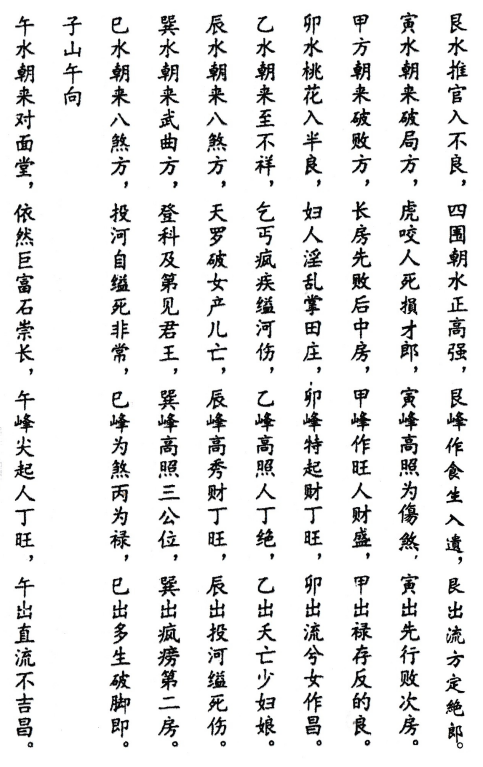 艮水推官入不良，四围朝水正高强，艮峰作食生入遗，艮出流方定絶郎。
寅水朝来破局方，虎咬人死損才郎，寅峰高照为傷煞，寅出先行败次房。
甲方朝来破败方，长房先败后中房，甲峰作旺人财盛，甲出禄存反的良。
卯水桃花入半良，妇人淫乱掌田庄，卯峰特起财丁旺，卯出流兮女作昌。
乙水朝来至不祥，乞丐疯疾缢河伤，乙峰高照人丁绝，乙出夭亡少妇娘。
辰水朝来八煞方，天罗破女产儿亡，辰峰高秀财丁旺，辰出投河缢死伤。
巽水朝来武曲方，登科及第见君王，巽峰高照三公位，巽出疯痨第二房。
巳水朝来八煞方，投河自缢死非常，巳峰为煞丙为禄，巳出多生破脚即。
子山午向
午水朝来对面堂，依然巨富石崇长，午峰尖起人丁旺，午出直流不吉昌。